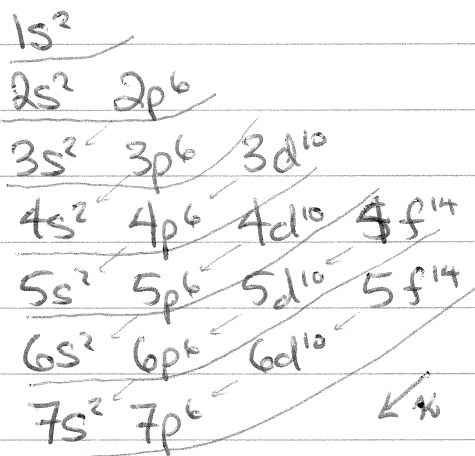 1s²
2s² 2p⁶
3s² 3p⁶ 3d¹⁰
4s² 4p⁶ 4d¹⁰ 4f¹⁴
5s² 5p⁶ 5d¹⁰ 5f¹⁴
6s² 6p⁶ 6d¹⁰
7s² 7p⁶